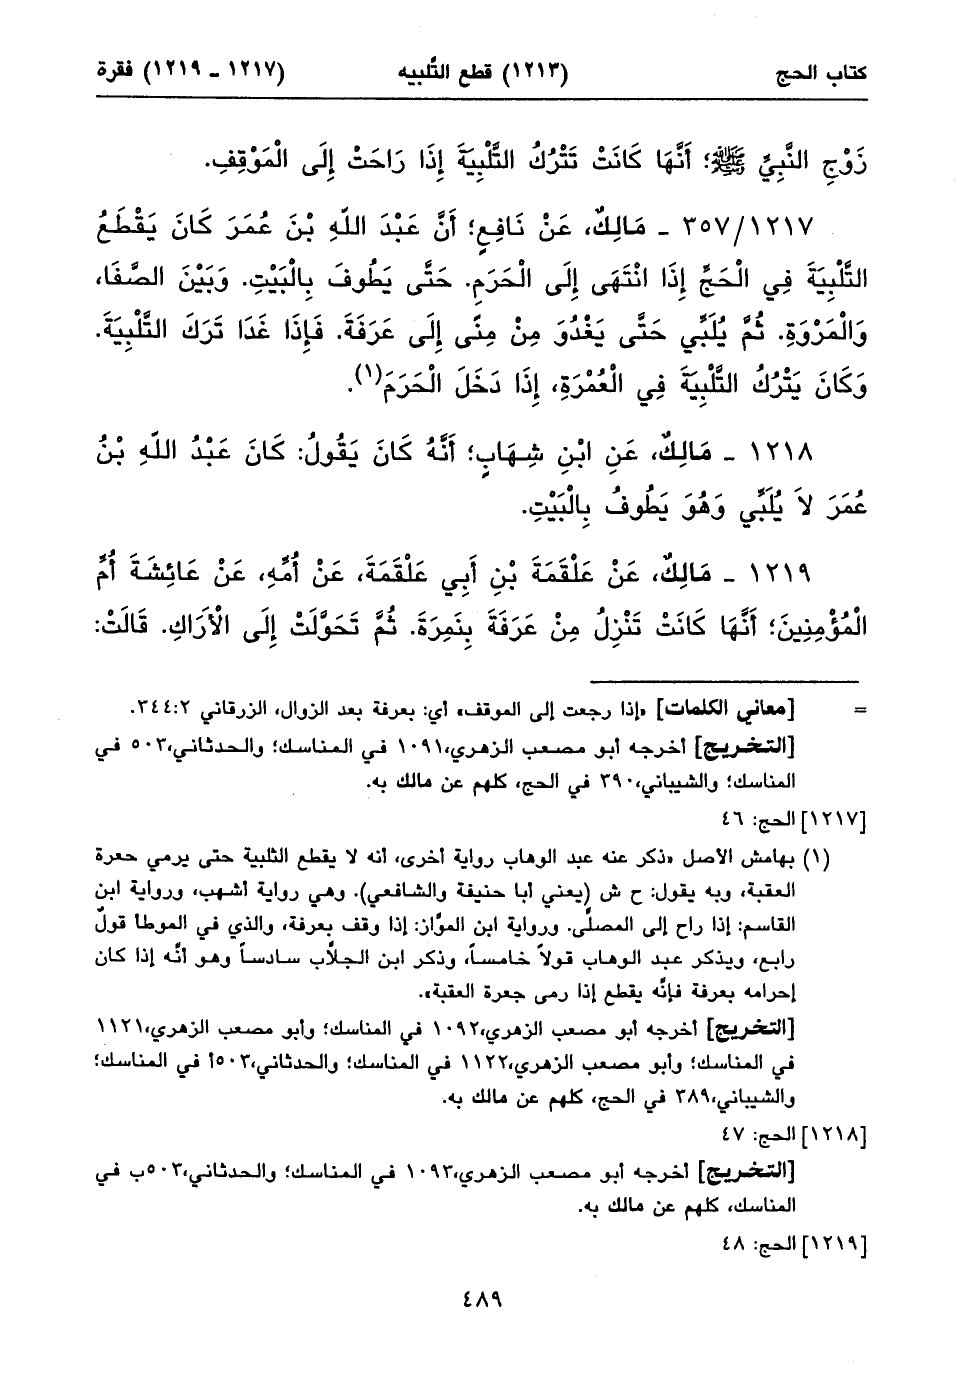 كتاب الحج (١٢١٣) قطع التَّلبيه (١٢١٧ ـ ١٢١٩) فقرة
زَوْجِ النَّبِيِّ ﷺ؛ أَنَّهَا كَانَتْ تَتْرُكُ التَّلْبِيَةَ إِذَا رَاحَتْ إِلَى الْمَوْقِفِ.
٣٥٧/١٢١٧ ـ مَالِكٌ، عَنْ نَافِعٍ؛ أَنَّ عَبْدَ اللّهِ بْنَ عُمَرَ كَانَ يَقْطَعُ
التَّلْبِيَةَ فِي الْحَجِّ إِذَا انْتَهَى إِلَى الْحَرَمِ. حَتَّى يَطُوفَ بِالْبَيْتِ. وَبَيْنَ الصَّفَا،
وَالْمَرْوَةِ. ثُمَّ يُلَبِّي حَتَّى يَغْدُوَ مِنْ مِنًى إِلَى عَرَفَةَ. فَإِذَا غَدَا تَرَكَ التَّلْبِيَةَ.
وَكَانَ يَتْرُكُ التَّلْبِيَةَ فِي الْعُمْرَةِ، إِذَا دَخَلَ الْحَرَمَ(١).
١٢١٨ ـ مَالِكٌ، عَنِ ابْنِ شِهَابٍ؛ أَنَّهُ كَانَ يَقُولُ: كَانَ عَبْدُ اللّهِ بْنُ
عُمَرَ لاَ يُلَبِّي وَهُوَ يَطُوفُ بِالْبَيْتِ.
١٢١٩ ـ مَالِكٌ، عَنْ عَلْقَمَةَ بْنِ أَبِي عَلْقَمَةَ، عَنْ أُمِّهِ، عَنْ عَائِشَةَ أُمِّ
الْمُؤْمِنِينَ؛ أَنَّهَا كَانَتْ تَنْزِلُ مِنْ عَرَفَةَ بِنَمِرَةَ. ثُمَّ تَحَوَّلَتْ إِلَى الْأَرَاكِ. قَالَتْ:
= [معاني الكلمات] «إذا رجعت إلى الموقف» أي: بعرفة بعد الزوال، الزرقاني ٣٤٤:٢.
[التخريج] أخرجه أبو مصعب الزهري، ١٠٩١ في المناسك؛ والحدثاني، ٥٠٣ في
المناسك؛ والشيباني، ٣٩٠ في الحج، كلهم عن مالك به.
[١٢١٧] الحج: ٤٦
(١) بهامش الأصل «ذكر عنه عبد الوهاب رواية أخرى، أنه لا يقطع التلبية حتى يرمي جمرة
العقبة، وبه يقول: ح ش (يعني أبا حنيفة والشافعي). وهي رواية أشهب، ورواية ابن
القاسم: إذا راح إلى المصلَّى. ورواية ابن الموَّاز: إذا وقف بعرفة، والذي في الموطأ قولٌ
رابع، ويذكر عبد الوهاب قولاً خامساً، وذكر ابن الجلَّاب سادساً وهو أنَّه إذا كان
إحرامه بعرفة فإنَّه يقطع إذا رمى جمرة العقبة».
[التخريج] أخرجه أبو مصعب الزهري، ١٠٩٢ في المناسك؛ وأبو مصعب الزهري، ١١٢١
في المناسك؛ وأبو مصعب الزهري، ١١٢٢ في المناسك؛ والحدثاني، ٥٠٣أ في المناسك؛
والشيباني، ٣٨٩ في الحج، كلهم عن مالك به.
[١٢١٨] الحج: ٤٧
[التخريج] أخرجه أبو مصعب الزهري، ١٠٩٣ في المناسك؛ والحدثاني، ٥٠٣ب في
المناسك، كلهم عن مالك به.
[١٢١٩] الحج: ٤٨
٤٨٩